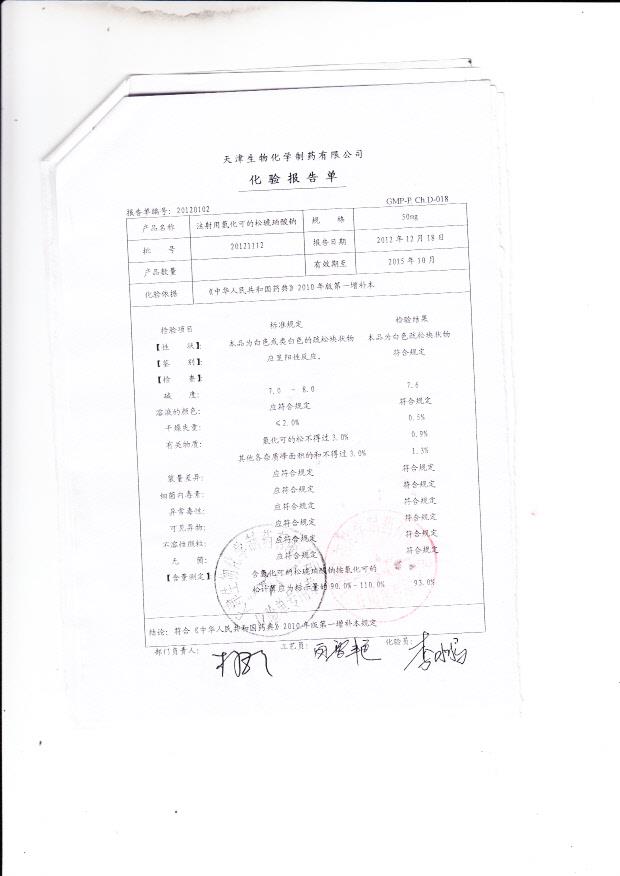 天津生物化学制药有限公司
化验报告单
报告单编号: 20120102 GMP-P Ch D-018
产品名称 注射用氢化可的松琥珀酸钠 规 格 50mg
批 号 20121112 报告日期 2012年12月18日
产品数量 有效期至 2015年10月
化验依据 《中华人民共和国药典》2010年版第一增补本
检验项目 标准规定 检验结果
【性 状】: 本品为白色或类白色的疏松块状物 本品为白色疏松块状物
【鉴 别】: 应呈阳性反应。 符合规定
【检 查】:
碱 度: 7.0 - 8.0 7.6
溶液的颜色: 应符合规定 符合规定
干燥失重: ≤2.0% 0.5%
有关物质: 氢化可的松不得过3.0% 0.9%
其他各杂质峰面积的和不得过3.0% 1.3%
装量差异: 应符合规定 符合规定
细菌内毒素: 应符合规定 符合规定
异常毒性: 应符合规定 符合规定
可见异物: 应符合规定 符合规定
不溶性微粒: 应符合规定 符合规定
无 菌: 应符合规定 符合规定
【含量测定】 含氢化可的松琥珀酸钠按氢化可的
松计算应为标示量的90.0%-110.0% 93.0%
结论: 符合《中华人民共和国药典》2010年版第一增补本规定
部门负责人: 工艺员: 化验员: